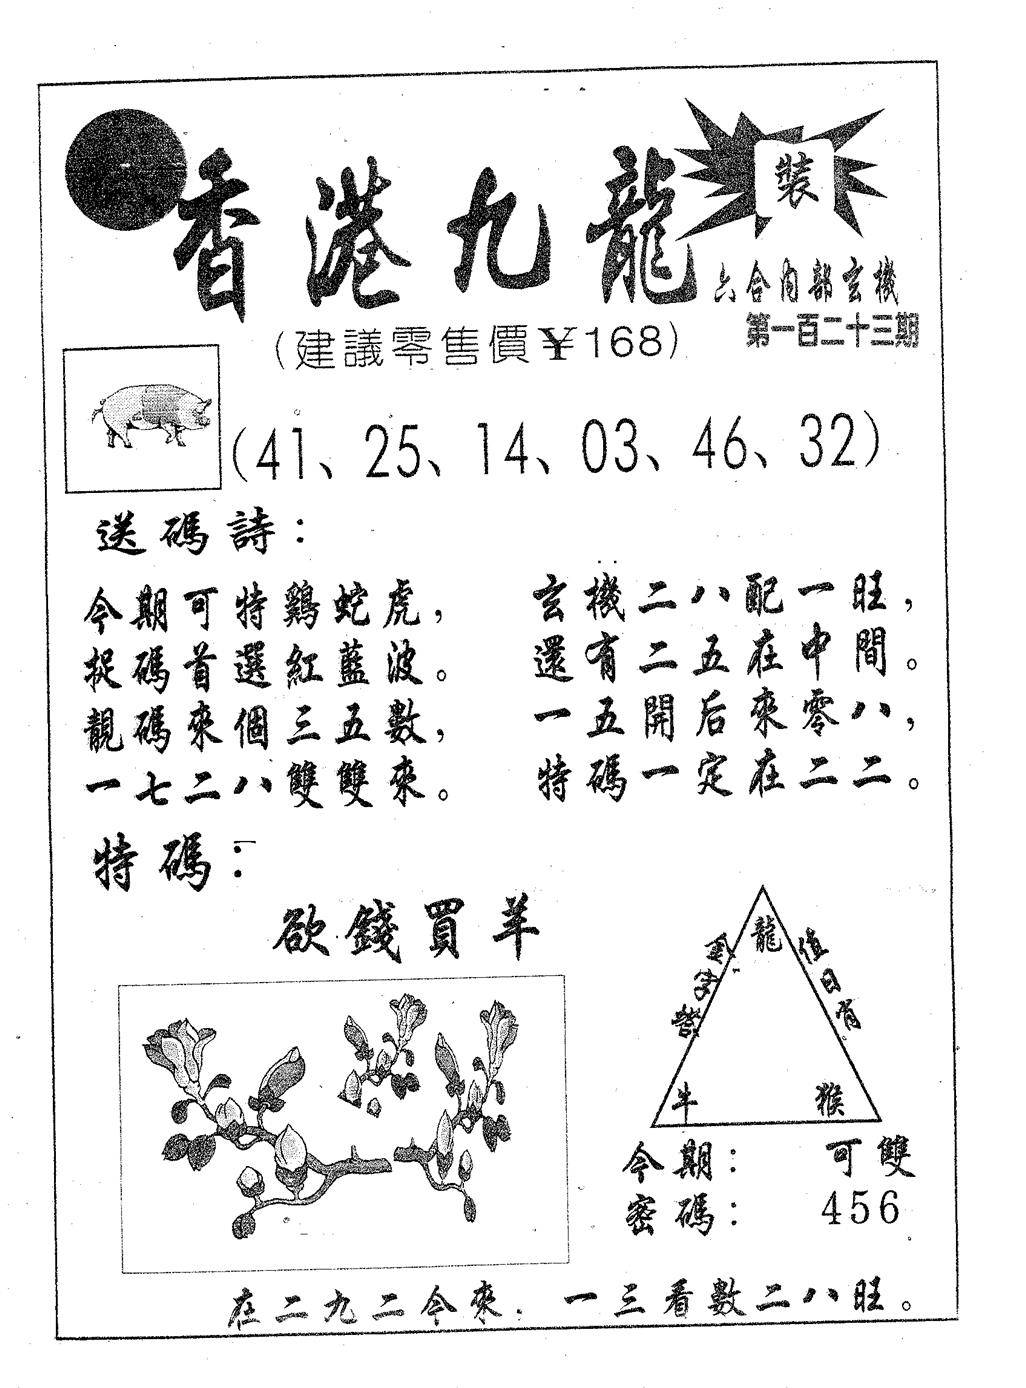 香港九龍
裝
六合內部玄機
第一百二十三期
(建議零售價¥168)
(41、25、14、03、46、32)
送碼詩：
今期可特鷄蛇虎，
捉碼首選紅藍波。
靚碼來個三五數，
一七二八雙雙來。
玄機二八配一旺，
還有二五在中間。
一五開后來零八，
特碼一定在二二。
特碼：
欲錢買羊
龍
值日肖
牛
猴
今期： 可雙
密碼： 456
在二九二今來．一三看數二八旺。